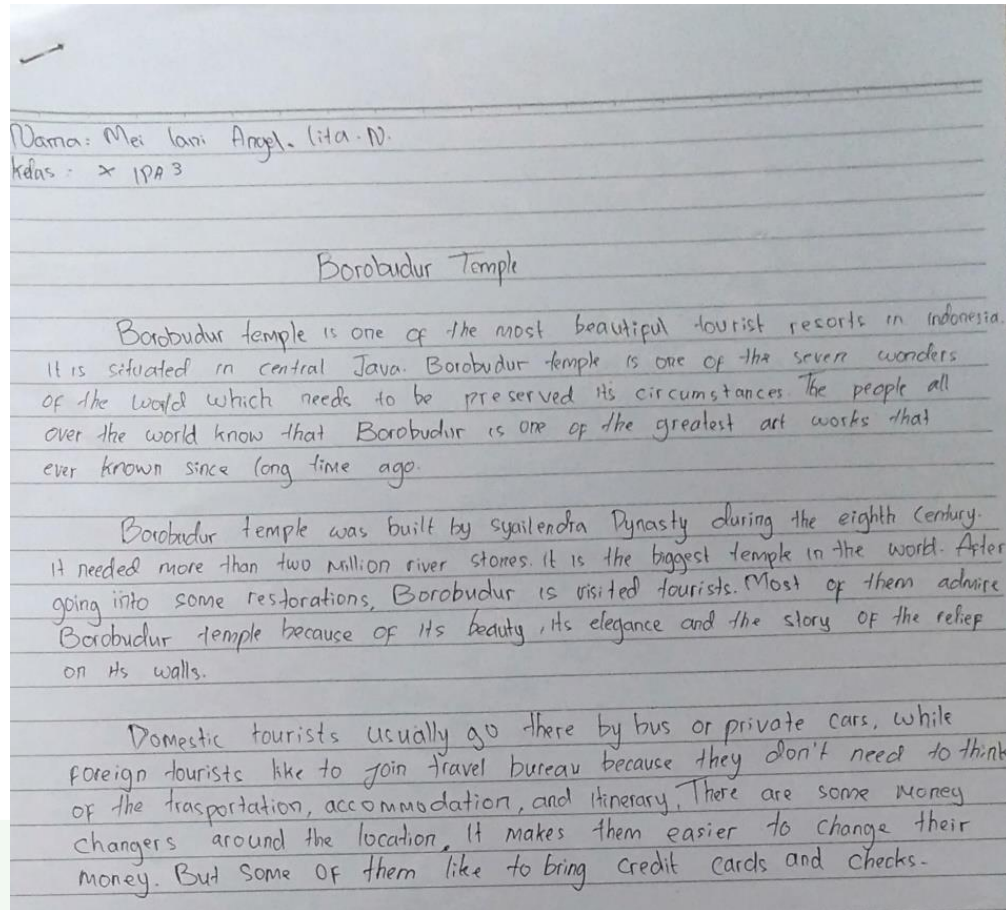 Nama: Mei lani Angel. lita. N.
Kelas : X IPA 3
Borobudur Temple
Borobudur temple is one of the most beautiful tourist resorts in indonesia.
It is situated in central Java. Borobudur temple is one of the seven wonders
of the world which needs to be preserved its circumstances. The people all
over the world know that Borobudur is one of the greatest art works that
ever known since long time ago.
Borobudur temple was built by syailendra Dynasty during the eighth Century.
It needed more than two Million river stones. It is the biggest temple in the world. After
going into some restorations, Borobudur is visited tourists. Most of them admire
Borobudur temple because of its beauty, its elegance and the story of the relief
on its walls.
Domestic tourists usually go there by bus or private cars, while
foreign tourists like to join travel bureau because they don't need to think
of the trasportation, accommodation, and itinerary. There are some money
changers around the location. It makes them easier to change their
money. But some of them like to bring credit cards and checks.